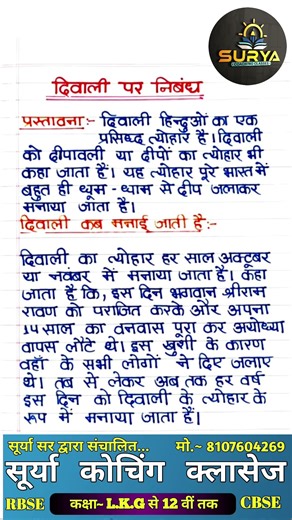 SURYA
दिवाली पर निबंध
प्रस्तावना :- दिवाली हिन्दुओं का एक
प्रसिद्ध त्योहार है। दिवाली
को दीपावली या दीपों का त्योहार भी
कहा जाता हैं। यह त्योहार पूरे भारत में
बहुत ही धूम-धाम से दीप जलाकर
मनाया जाता है।
दिवाली कब मनाई जाती है:-
दिवाली का त्योहार हर साल अक्टूबर
या नवंबर में मनाया जाता है। कहा
जाता हैं कि, इस दिन भगवान श्रीराम
रावण को पराजित करके और अपना
14 साल का वनवास पूरा कर अयोध्या
वापस लौटे थे। इस खुशी के कारण
वहाँ के सभी लोगों ने दिए जलाए
थे। तब से लेकर अब तक हर वर्ष
इस दिन को दिवाली के त्योहार के
रूप में मनाया जाता हैं।
सूर्या सर द्वारा संचालित... मो.~ 8107604269
सूर्या कोचिंग क्लासेज
RBSE कक्षा~ L.K.G से 12 वीं तक CBSE